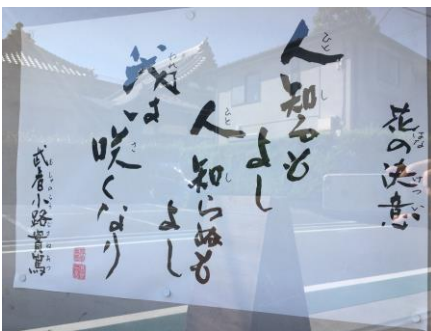 花の決意
人知るも
よし
人知らぬも
よし
我は
咲くなり
武者小路實篤